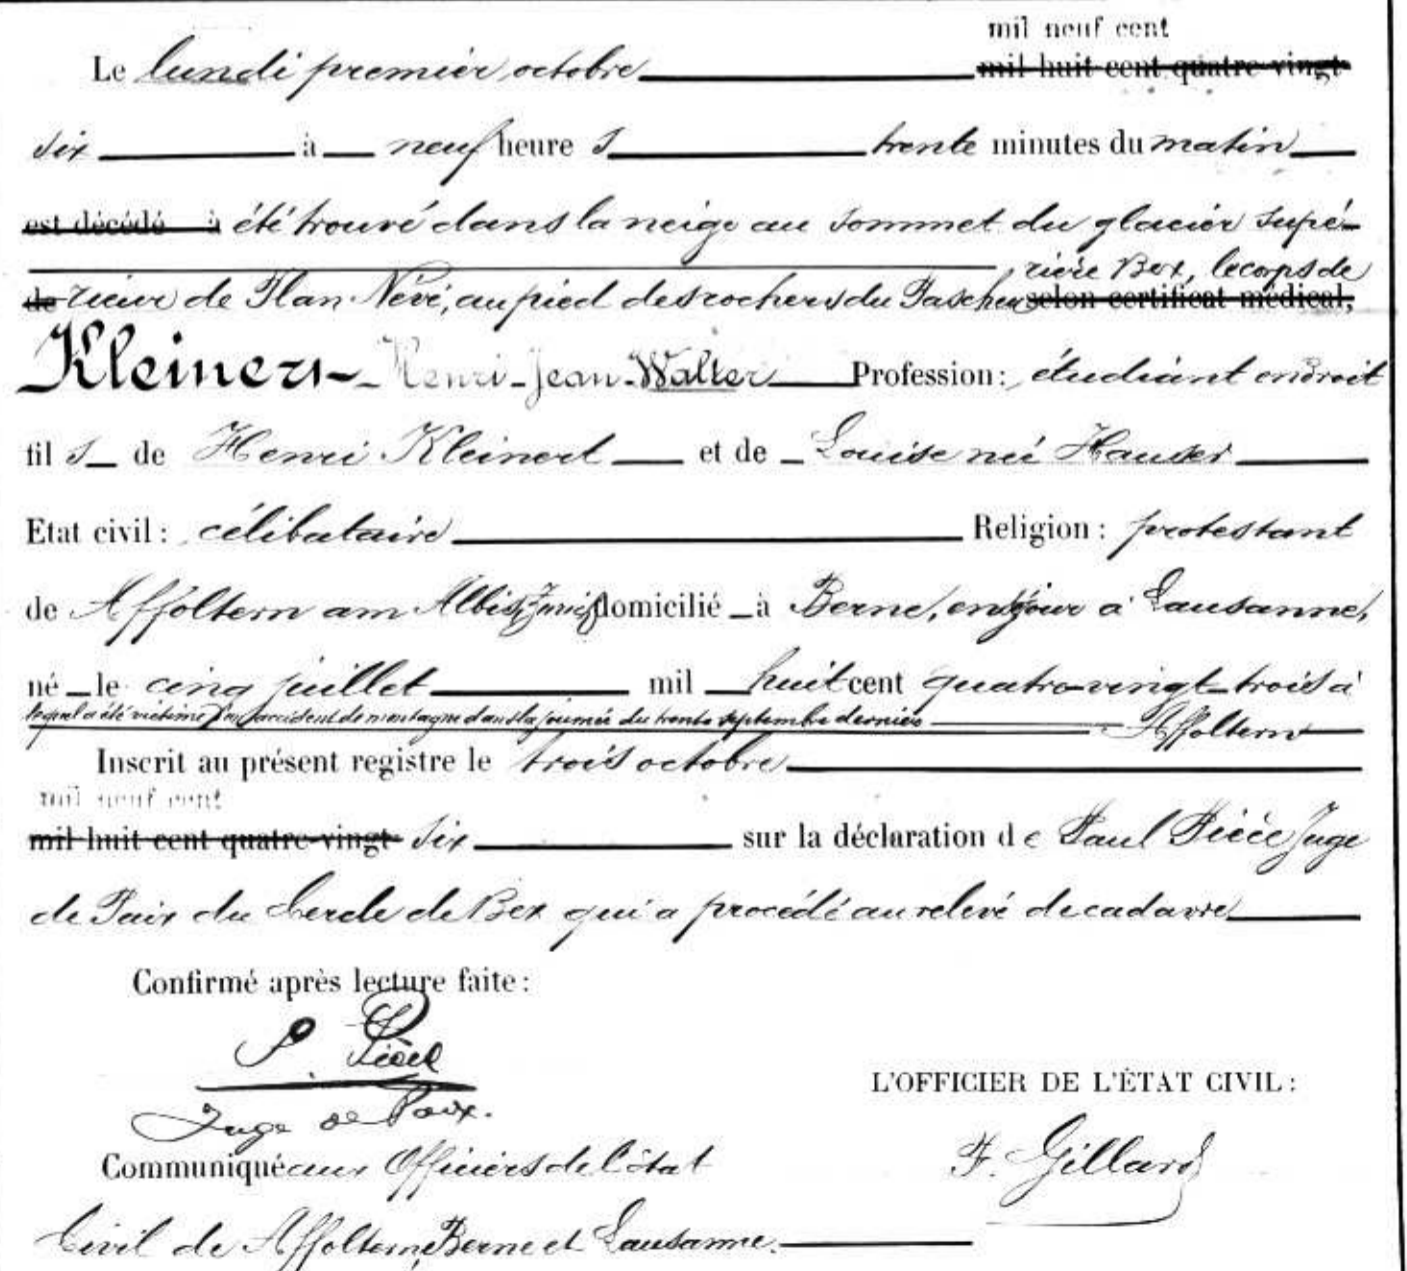 mil neuf cent
Le lundi premier octobre mil huit cent quatre-vingt
six à neuf heures trente minutes du matin
est décédé à été trouvé dans la neige au sommet du glacier supé-
rière Bex, le corps de
de rieur de Plan Névé, au pied des rochers du Pascheu selon certificat médical,
Kleinert Henri-Jean-Walter Profession: étudiant en droit
fils de Henri Kleinert et de Louise née Hauser
Etat civil: célibataire Religion: protestant
de Affoltern am Albis, domicilié à Berne, en séjour à Lausanne,
né le cinq juillet mil huit cent quatre-vingt-trois à
lequel a été victime d'un accident de montagne dans la journée du trente septembre dernier Affoltern
Inscrit au présent registre le trois octobre
mil neuf cent
mil huit cent quatre-vingt six sur la déclaration de Paul Juge
de Paix du Cercle de Bex qui a procédé au relevé de cadavre
Confirmé après lecture faite:
P.
Juge de Paix.
L'OFFICIER DE L'ÉTAT CIVIL:
Communiqué aux Officiers de l'état F. Gillard
Civil de Affoltern, Berne et Lausanne.